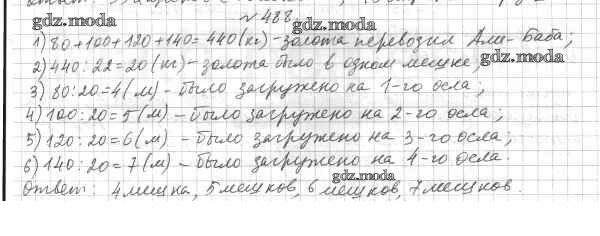 № 488
gdz.moda
gdz.moda
1) 80+100+120+140=440 (кг) - золота перевозил Али-Баба;
2) 440:22=20 (кг) - золота было в одном мешке;
gdz.moda
3) 80:20=4 (м) - было загружено на 1-го осла;
4) 100:20=5 (м) - было загружено на 2-го осла;
5) 120:20=6 (м) - было загружено на 3-го осла;
6) 140:20=7 (м) - было загружено на 4-го осла.
gdz.moda
Ответ: 4 мешка, 5 мешков, 6 мешков, 7 мешков.